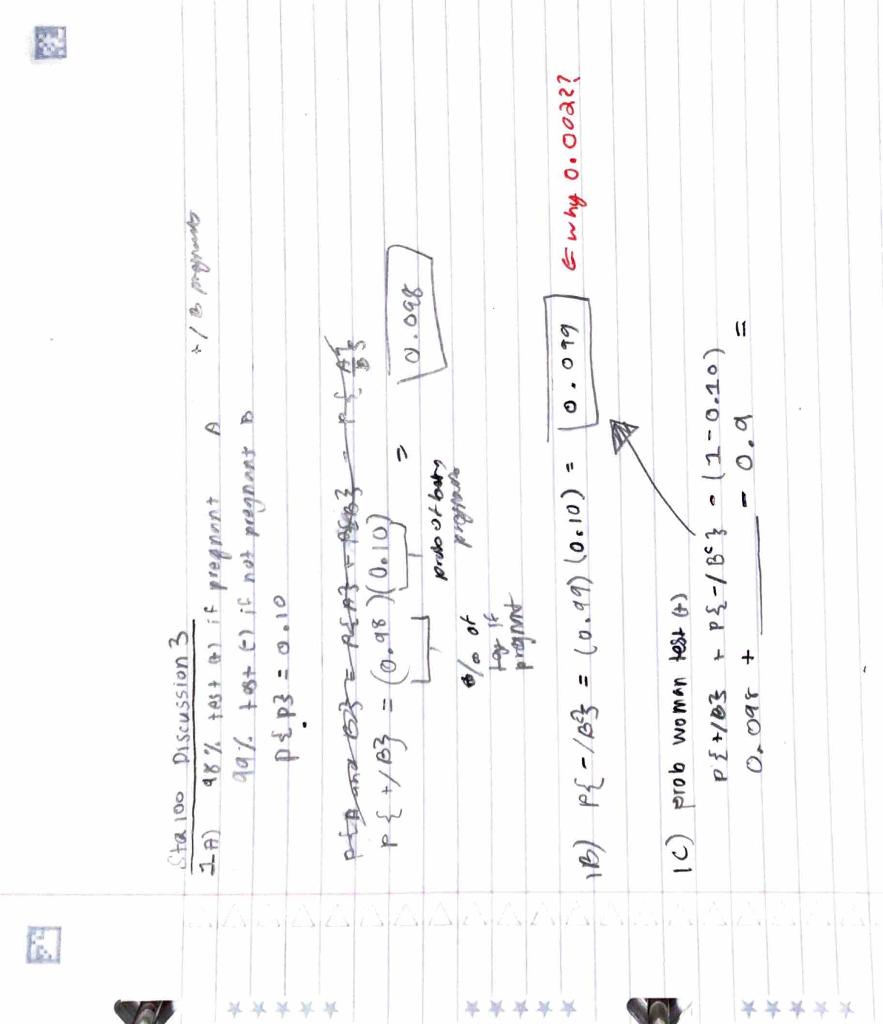 Sta 100 Discussion 3
1A) 98% test (+) if pregnant A +/B pregnant
99% test (-) if not pregnant B
P{P} = 0.10
P{A and B} = P{A} + P{B}
P{+/B} = (0.98)(0.10) = 0.098
% of
if
pregnant
prob of being
pregnant
1B) P{-/Bᶜ} = (0.99)(0.10) = 0.099 ← why 0.0022?
1C) prob woman test (+)
P{+/B} + P{-/Bᶜ} - (1-0.10)
0.098 + ____ - 0.9 =